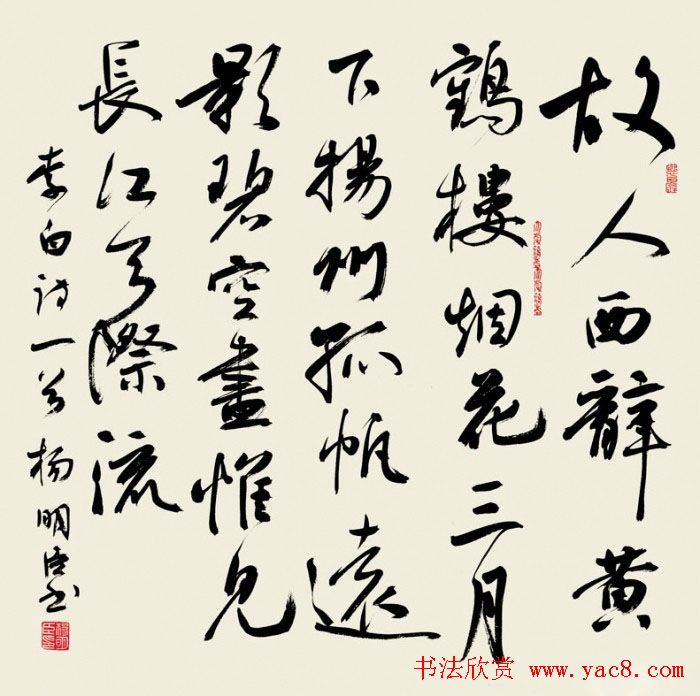 故人西辭黄
鶴樓烟花三月
下揚州孤帆遠
影碧空盡惟見
長江天際流
李白诗一首 杨明臣书
书法欣赏 www.yac8.com